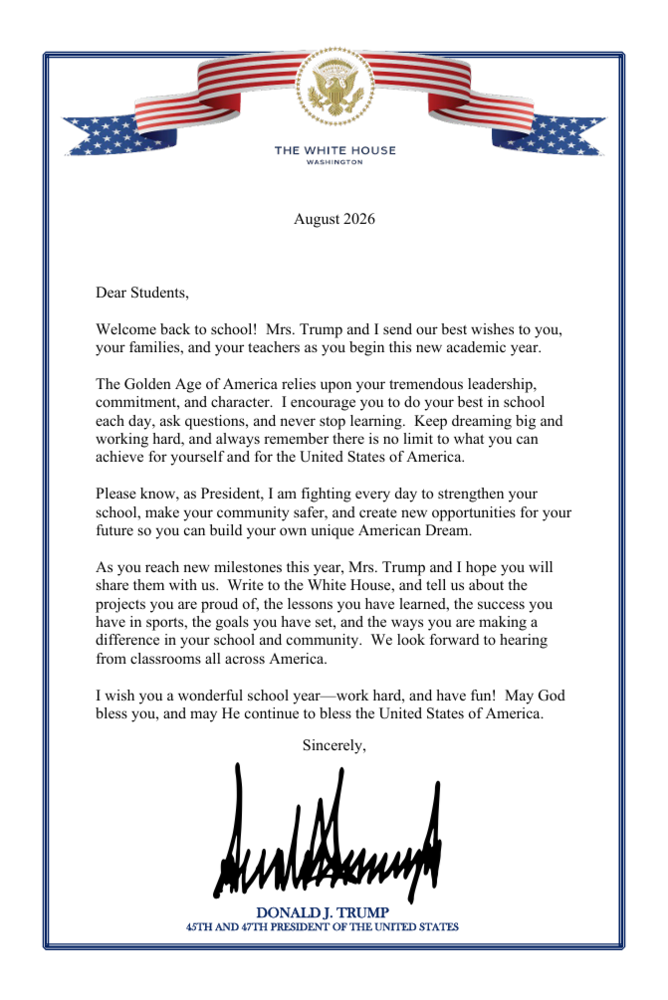 THE WHITE HOUSE
WASHINGTON
August 2026
Dear Students,
Welcome back to school!  Mrs. Trump and I send our best wishes to you,
your families, and your teachers as you begin this new academic year.
The Golden Age of America relies upon your tremendous leadership,
commitment, and character.  I encourage you to do your best in school
each day, ask questions, and never stop learning.  Keep dreaming big and
working hard, and always remember there is no limit to what you can
achieve for yourself and for the United States of America.
Please know, as President, I am fighting every day to strengthen your
school, make your community safer, and create new opportunities for your
future so you can build your own unique American Dream.
As you reach new milestones this year, Mrs. Trump and I hope you will
share them with us.  Write to the White House, and tell us about the
projects you are proud of, the lessons you have learned, the success you
have in sports, the goals you have set, and the ways you are making a
difference in your school and community.  We look forward to hearing
from classrooms all across America.
I wish you a wonderful school year—work hard, and have fun!  May God
bless you, and may He continue to bless the United States of America.
Sincerely,
DONALD J. TRUMP
45TH AND 47TH PRESIDENT OF THE UNITED STATES